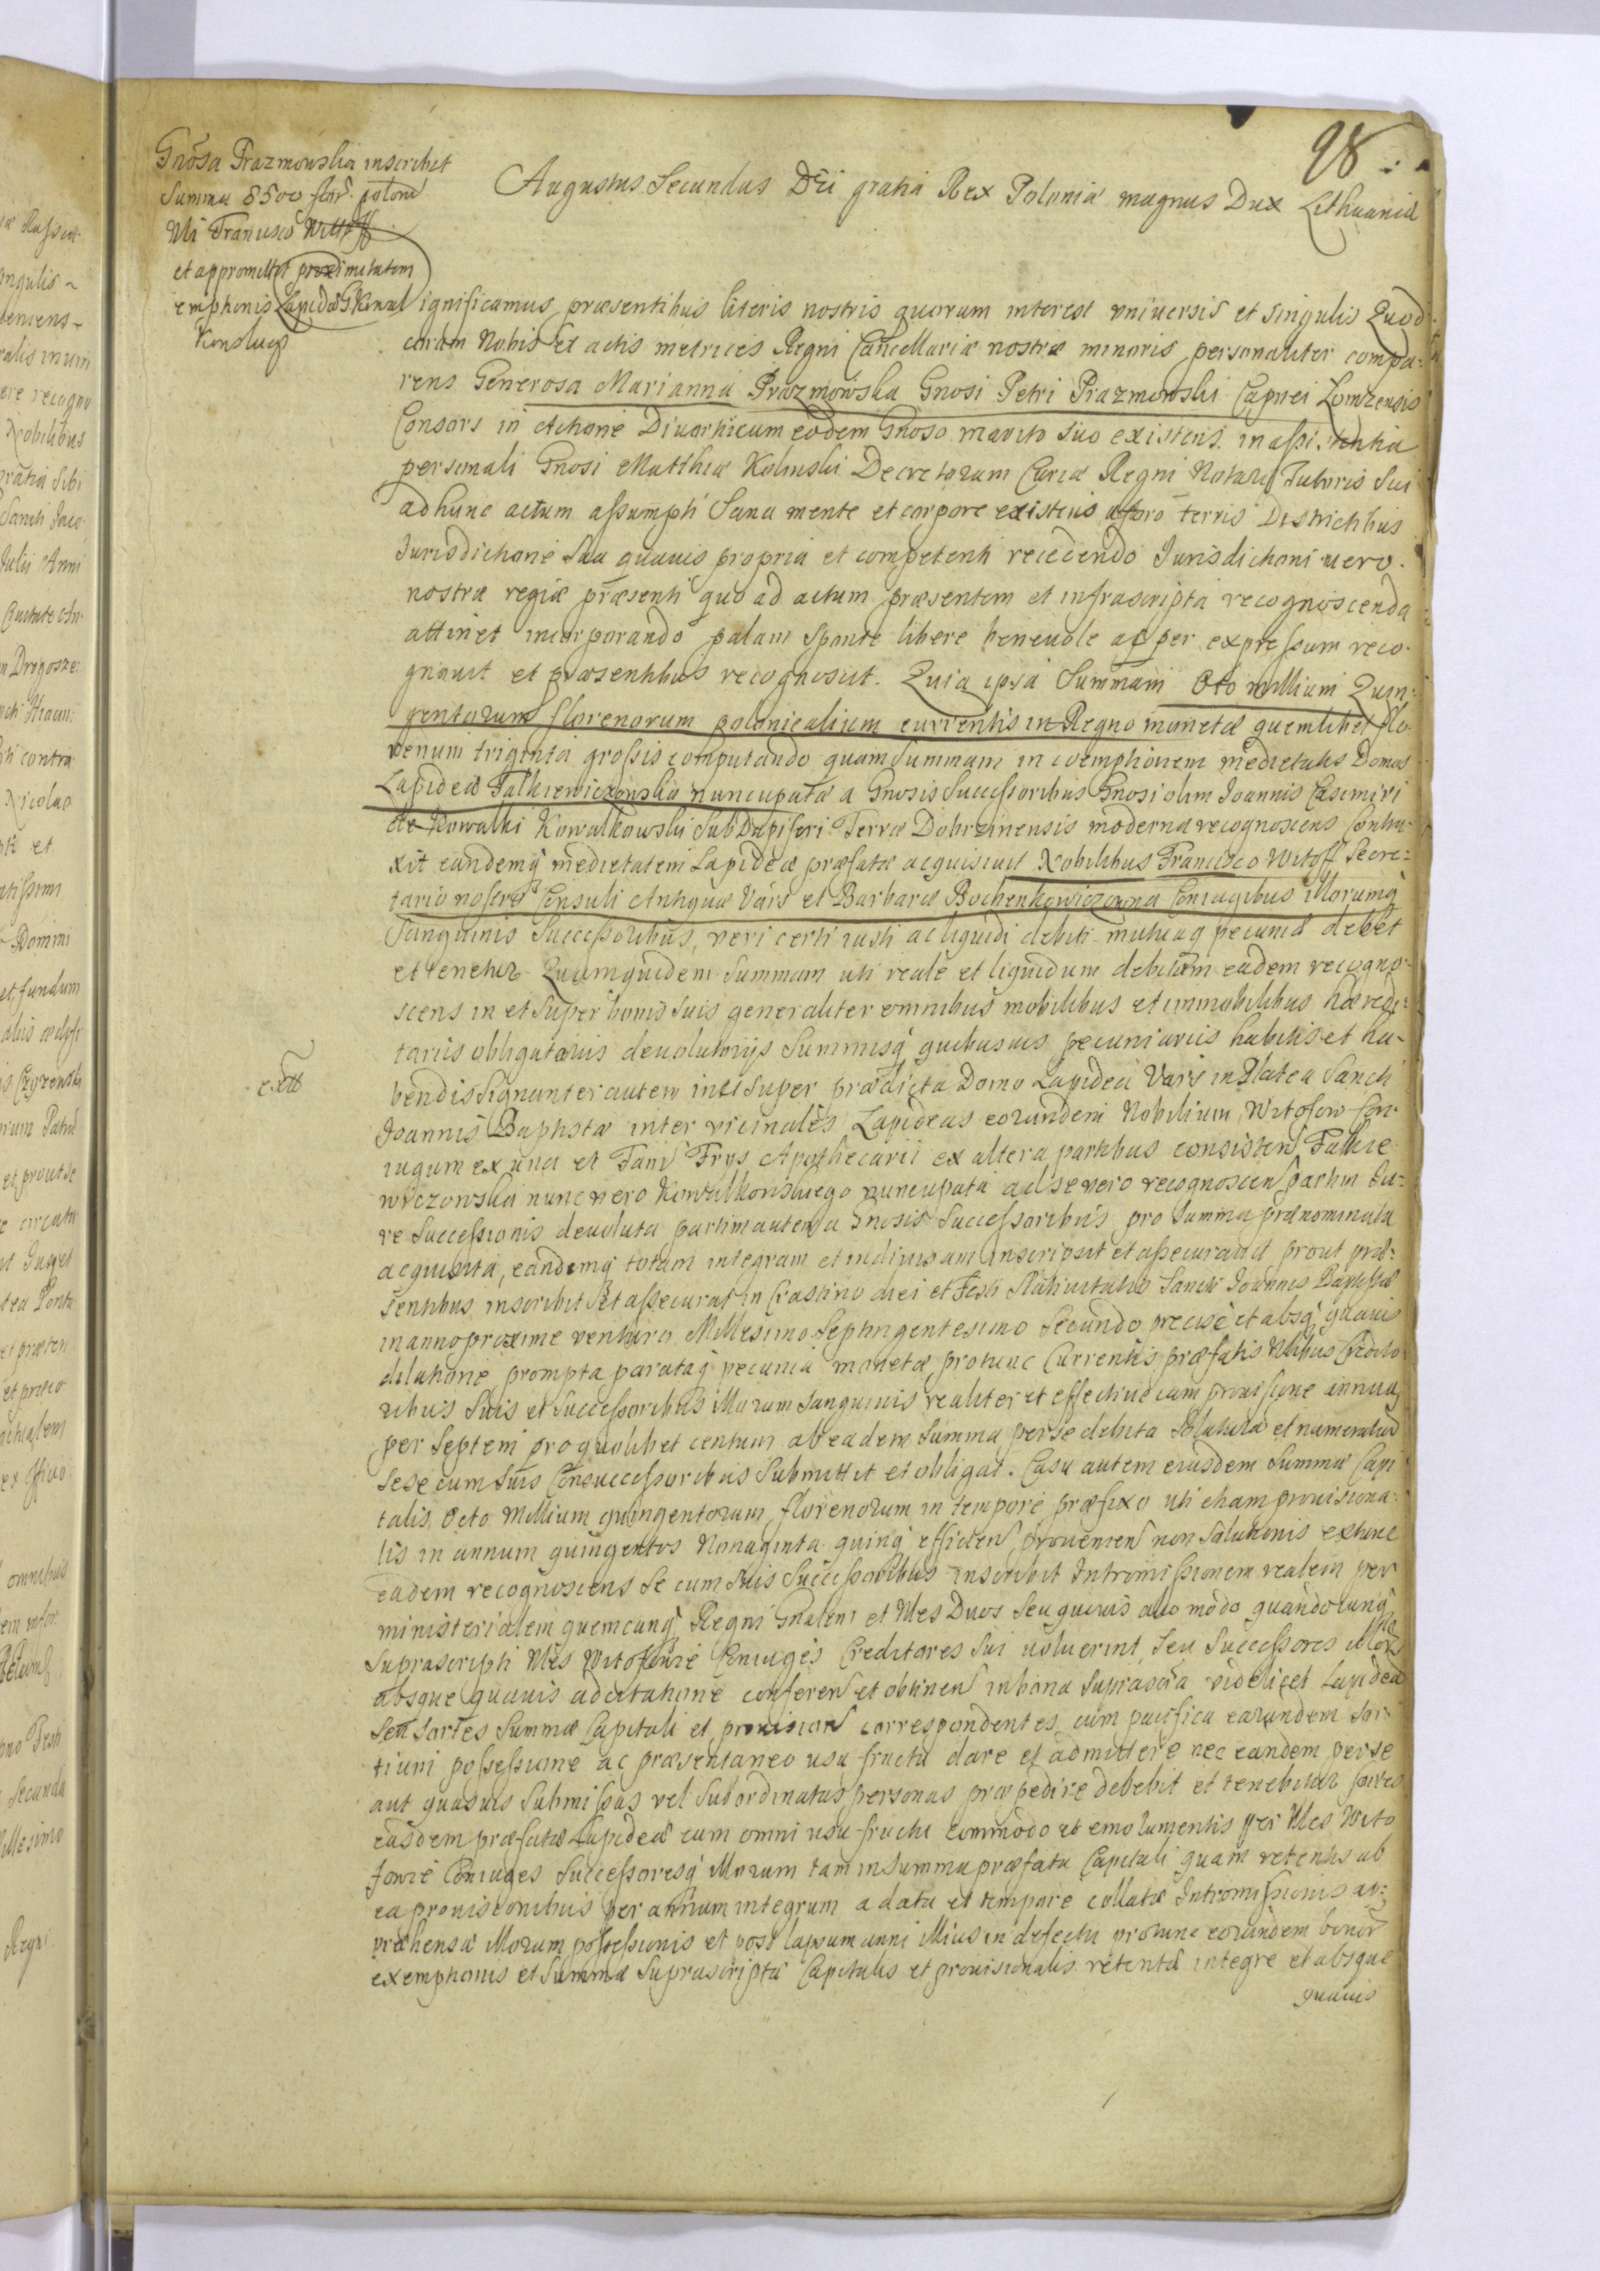 98
Gnosa Prazmowska inscribit
Summa 8500 flor. poloni
Nli Francisco Witoff
et appromittet proximitatem
emptionis Lapideæ Kowal
Konsluego
Augustus Secundus Dei gratia Rex Poloniæ magnus Dux Lithuaniæ
Significamus præsentibus literis nostris quorum interest vniuersis et singulis Quod
coram Nobis et actis metrices Regni Cancellariæ nostræ minoris personaliter compa-
rens Generosa Marianna Prazmowska Gnosi Petri Prazmowski Capnei Lomzensis
Consors in Actione Diuortii cum eodem Gnoso marito suo existens in assistentia
personali Gnosi Matthiæ Kolinski Decretorum Curiæ Regni Notarii Tutoris Sui
ad hunc actum assumpti Sana mente et corpore existens a foro terris Districtibus
Iurisdictione sua quauis propria et competenti recedendo Iurisdictioni uero
nostræ regiæ præsenti quo ad actum præsentem et infrascripta recognoscenda
attinet incorporando palam sponte libere beneuole ac per expressum reco-
gnouit et præsentibus recognoscit. Quia ipsa Summam Octo millium Quin-
gentorum florenorum polonicalium currentis in Regno monetæ quemlibet flo-
renum triginta grossis computando quam summam in coemptionem medietatis Domus
Lapideæ Falkiewiczowska nuncupatæ a Gnosis Successoribus Gnosi olim Ioannis Casimiri
de Kowalki Kowalkowski SubDapiferi Terræ Dobrzinensis moderna recognoscens contra-
xit eandemq medietatem Lapideæ præfatæ acquisiuit Nobilibus Francisco Witoff Secre-
tario nostro Consuli Antiquæ Vars et Barbaræ Bochenkowiczowna Coniugibus illorumq
Sanguinis Successoribus, veri certi iusti ac liquidi debiti mutuæq pecuniæ debet
et tenetur Quamquidem Summam uti reale et liquidum debitum eadem recogno-
scens in et super bonis suis generaliter omnibus mobilibus et immobilibus hæredi-
tariis obligatoriis deuolutorijs Summisq quibusuis pecuniariis habitis et ha-
bendis signanter autem in et super prædicta Domo Lapidea Vars in Platea Sancti
Ioannis Baptistæ inter vicinales Lapideas eorundem Nobilium Witosow Con-
iugum ex una et Fani Frys Apothecarii ex altera partibus consisten Falkie-
wiczowska nunc vero Kowalkowskiego nuncupata ad se vero recognoscen partim Iu-
re Successionis deuoluta partim autem a Gnosis Successoribus pro summa prænominata
acquisita, eandemq totam integram et indiuisam inscripsit et assecurauit prout præ-
sentibus inscribit et assecurat in Crastino diei et Festi Natiuitatis Sancti Ioannis Baptistæ
in anno proxime venturo Millesimo Septingentesimo Secundo precise et absq quauis
dilatione prompta parataq pecunia monetæ protunc Currentis præfatis Nlibus Credito-
ribus Suis et Successoribus illorum sanguinis realiter et effectiue cum prouisione annua
per Septem pro quolibet centum ab eadem Summa per se debita Soluturæ et numeraturæ
sese cum suis Consuccessoribus Submittit et obligat. Casu autem eiusdem Summæ Capi-
talis Octo Millium quingentorum florenorum in tempore præfixo uti etiam prouisiona-
lis in annum quingentos Nonaginta quinq efficien prouenien non Solutionis extunc
eadem recognoscens se cum suis Successoribus inscribit Intromissionem realem per
ministerialem quemcunq Regni Gnalem et Nles Duos seu quouis alio modo quandocunq
Suprascripti Nles Witofowie Coniuges Creditores sui voluerint seu Successores illor
absque quauis adcitatione conferen et obtinen in bona suprascrta videlicet Lapideæ
seu sortes Summæ Capitali et prouision correspondentes cum pacifica earundem sor-
tium possessione ac præsentaneo usu fructu dare et admittere nec eandem per se
aut quasuis Submissas vel Subordinatas personas præpedire debebit et tenebitur sortes
easdem præfatæ Lapideæ cum omni usu fructu commodo et emolumentis per Nles Wito
fowie Coniuges Successoresq illorum tam in summa præfata Capitali quam retentis ab
ea prouisionibus per annum integrum a data et tempore collatæ Intromissionis ap-
præhensæ illorum possessionis et post lapsum anni illius in defectu protunc eorundem bonor
exemptionis et Summæ Suprascriptæ Capitalis et prouisionalis retentæ integre et absque
quauis